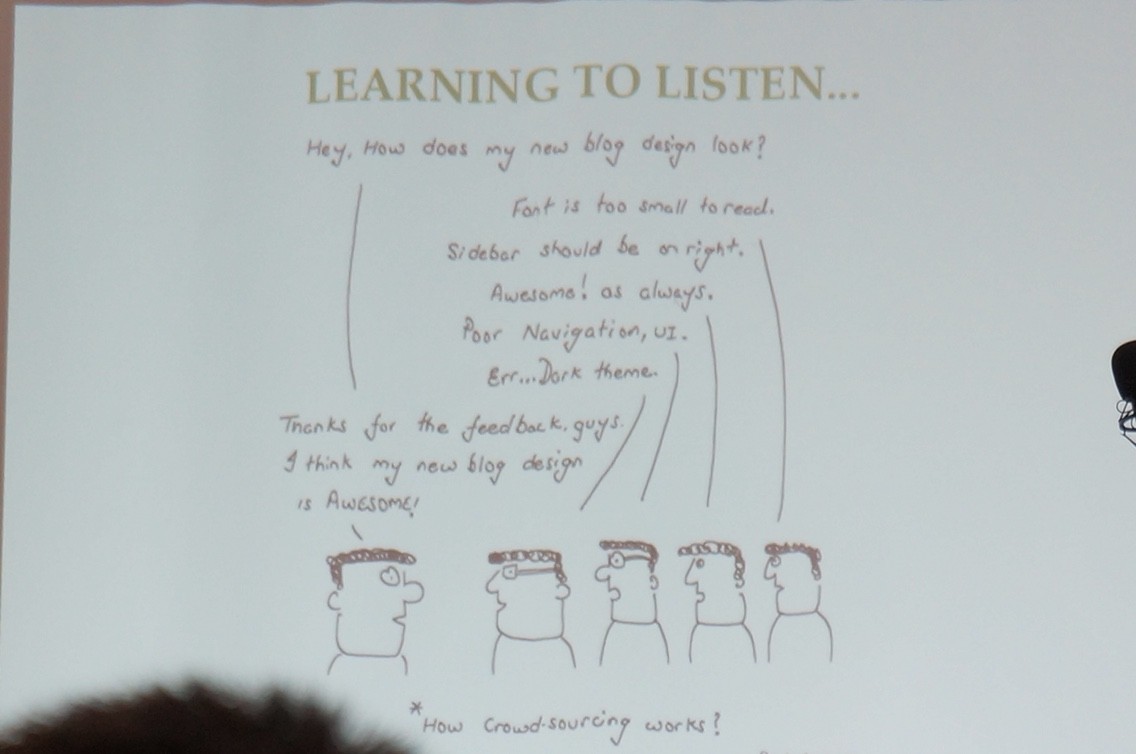 LEARNING TO LISTEN...
Hey, How does my new blog design look?
Font is too small to read.
Sidebar should be on right.
Awesome! as always.
Poor Navigation, UI.
Err...Dark theme.
Thanks for the feedback, guys.
I think my new blog design
is AWESOME!
*How Crowd-sourcing works?